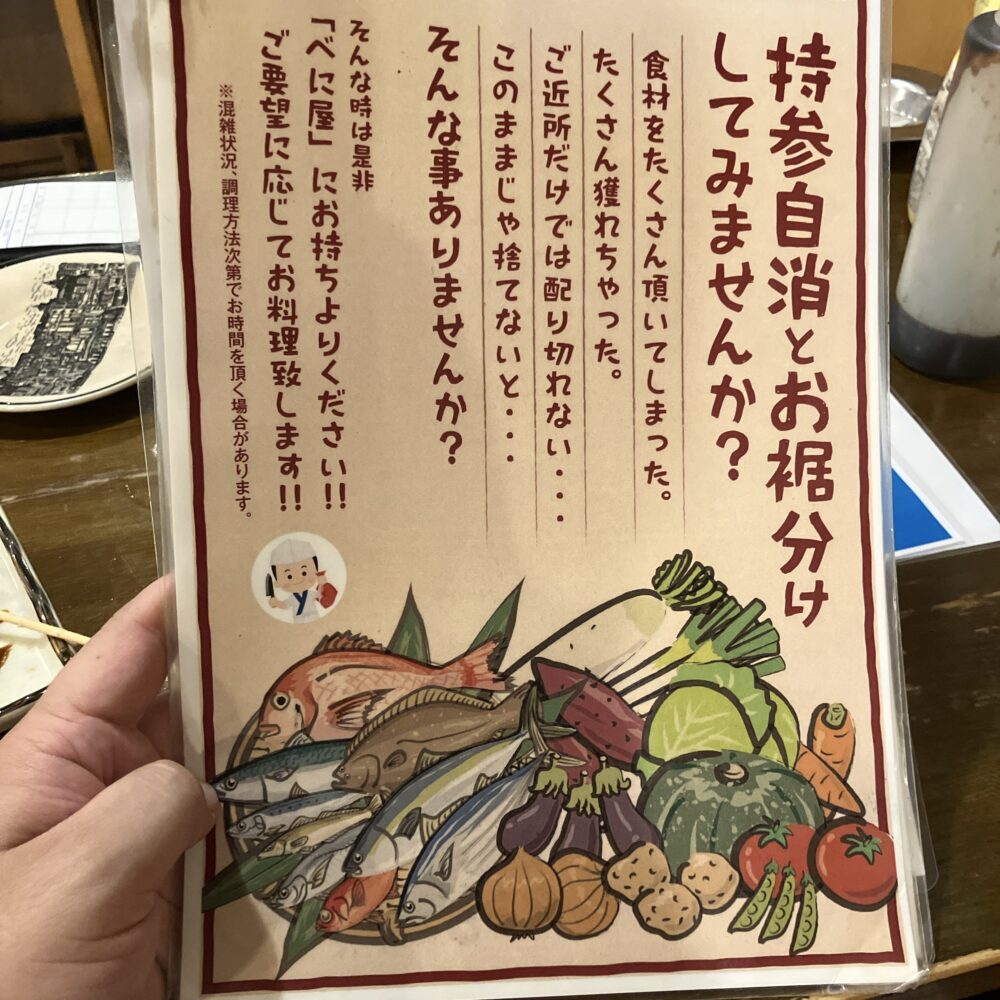 持参自消とお裾分け
してみませんか?
食材をたくさん頂いてしまった。
たくさん獲れちゃった。
ご近所だけでは配り切れない・・・
このままじゃ捨てないと・・・
そんな事ありませんか?
そんな時は是非
「べに屋」にお持ちよりください!!
ご要望に応じてお料理致します!!
※混雑状況、調理方法次第でお時間を頂く場合があります。